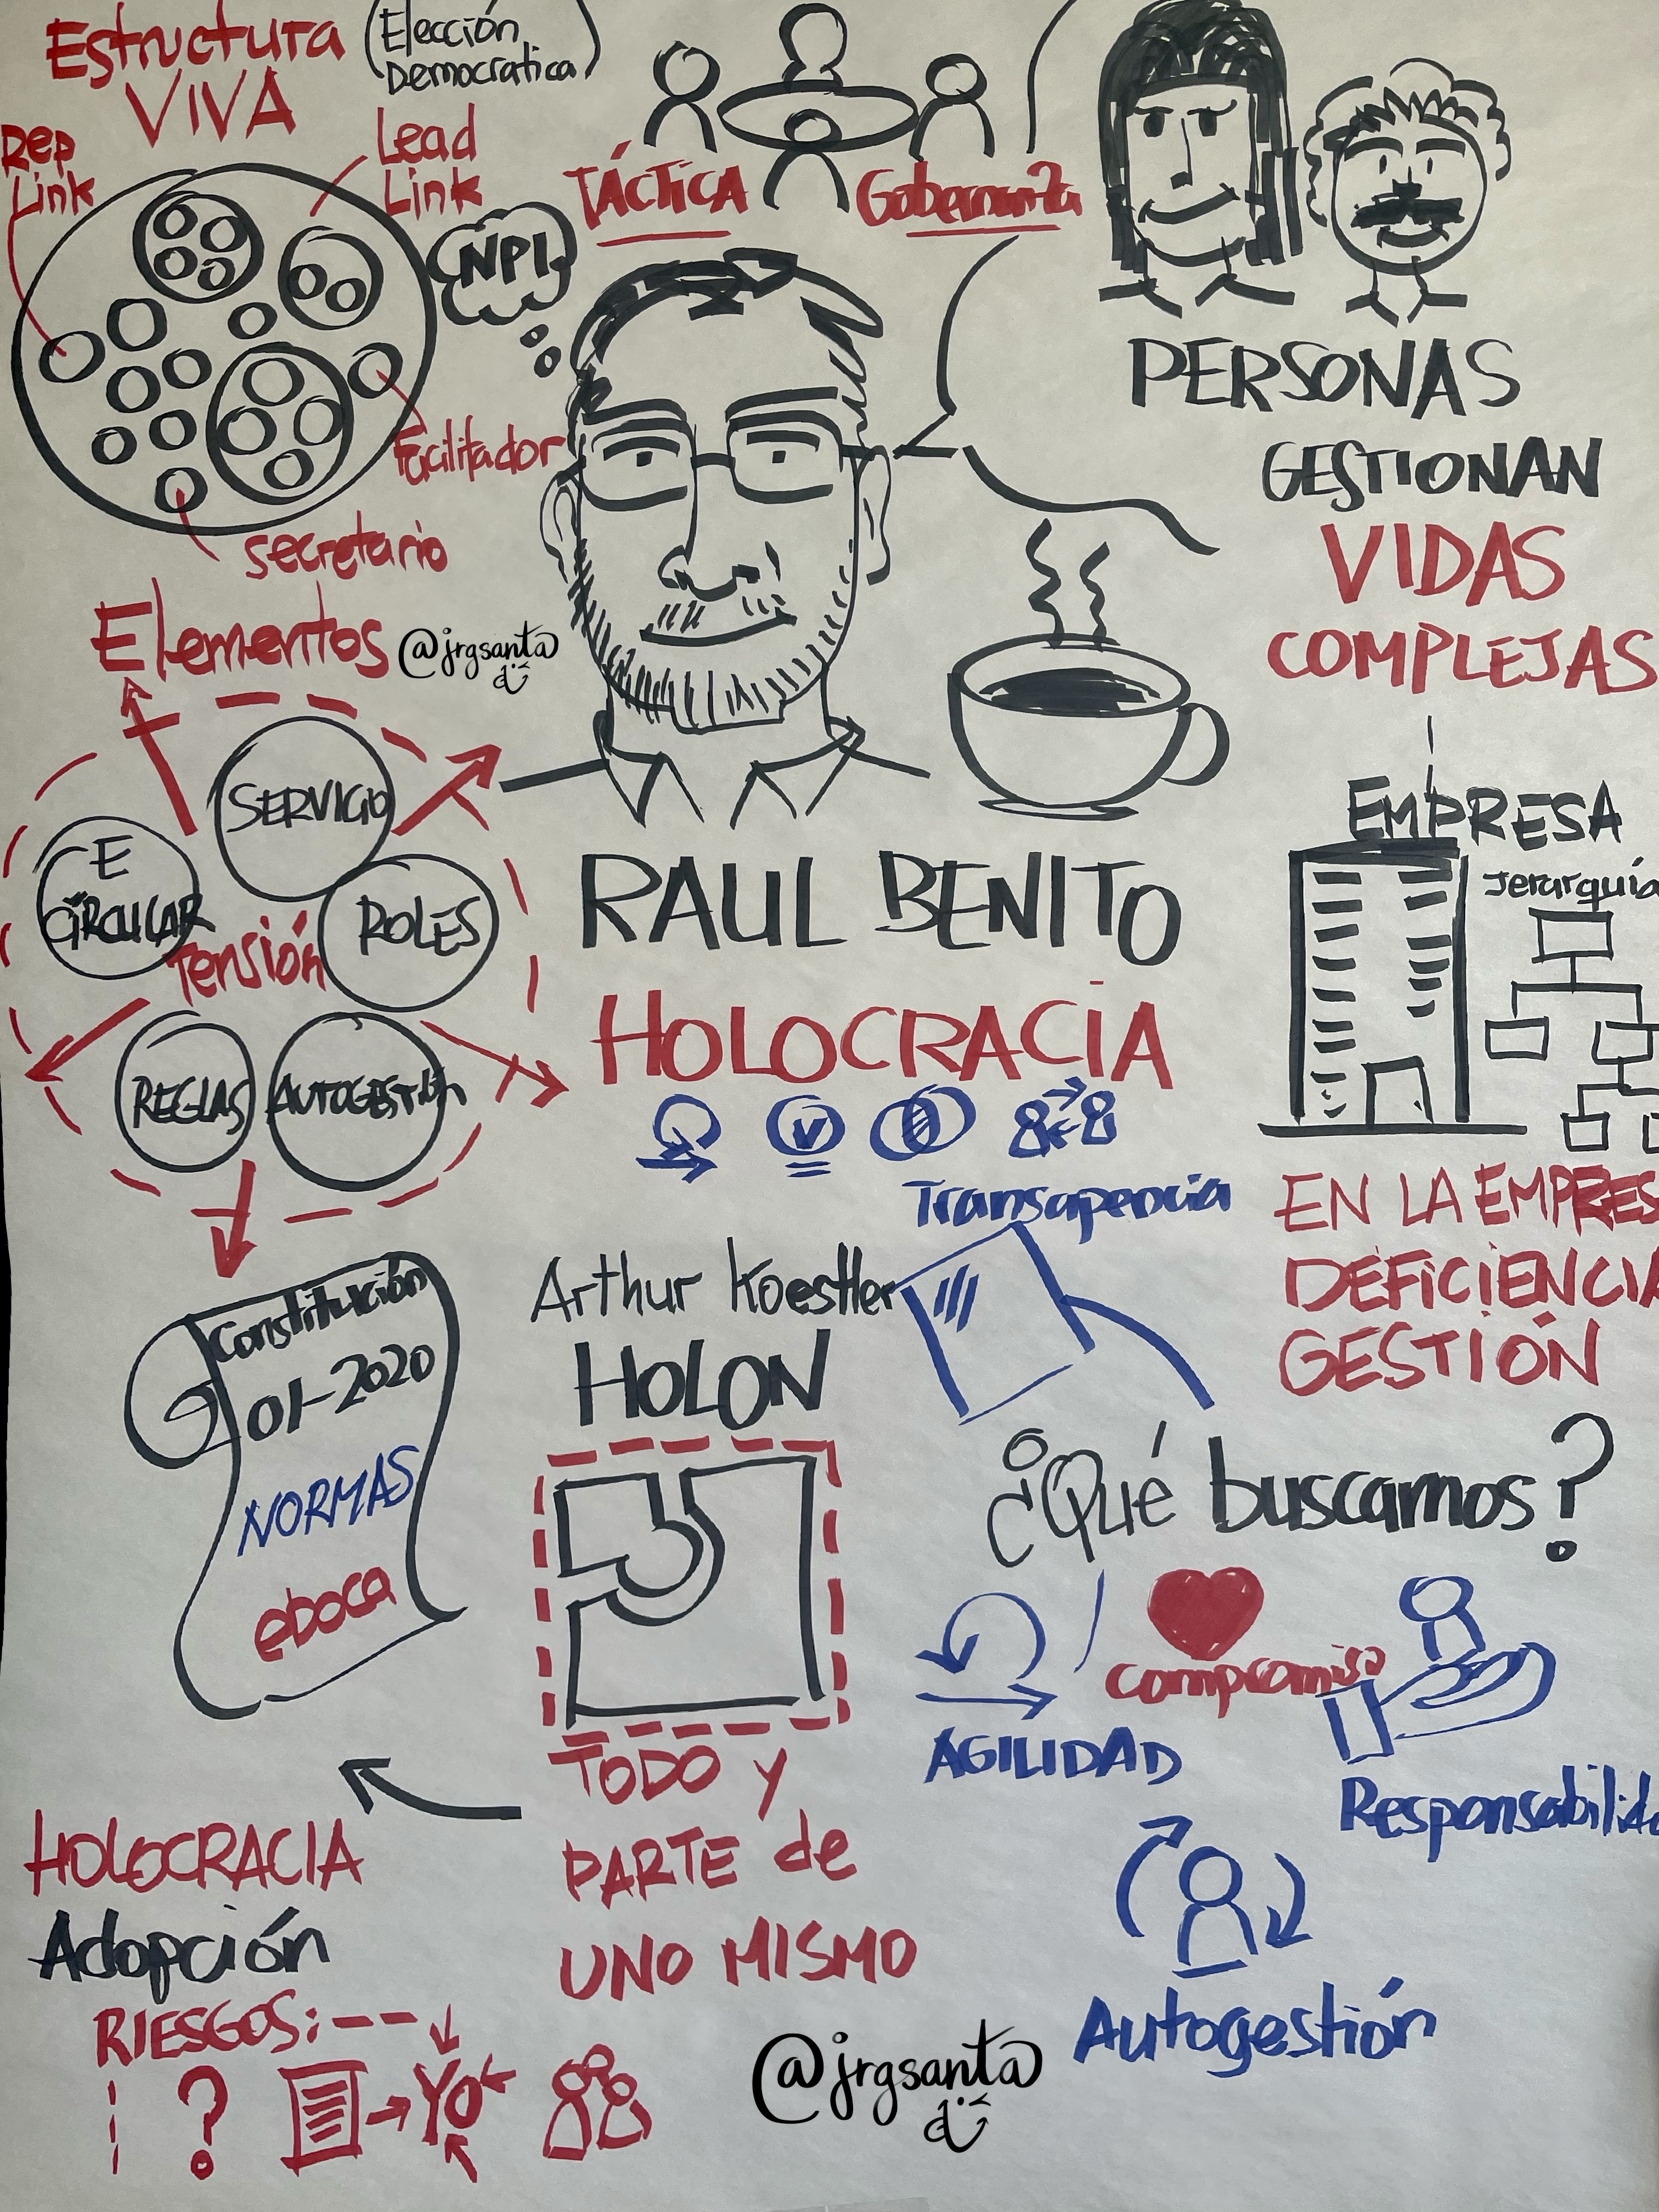 Estructura
VIVA
(Elección
Democratica)
Rep
Link
Lead
Link
Facilitador
secretario
NPI
TÁCTICA
Gobernanza
PERSONAS
GESTIONAN
VIDAS
COMPLEJAS
Elementos
@jrgsanta
SERVICIO
E
CIRCULAR
Tensión
ROLES
REGLAS
AUTOGESTIÓN
RAUL BENITO
HOLOCRACIA
V
EMPRESA
Jerarquía
EN LA EMPRES
DEFICIENCIA
GESTIÓN
Transaperncia
Constitución
01-2020
NORMAS
Arthur Koestler
HOLON
TODO y
PARTE de
UNO MISMO
¿Qué buscamos?
Compromiso
AGILIDAD
Responsabilida
Autogestión
HOLOCRACIA
Adopción
RIESGOS:
?
YO
@jrgsanta